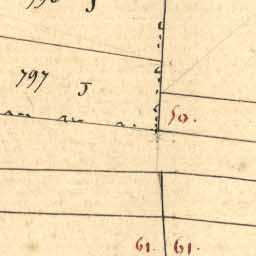 J
797 J
50.
61. 61.